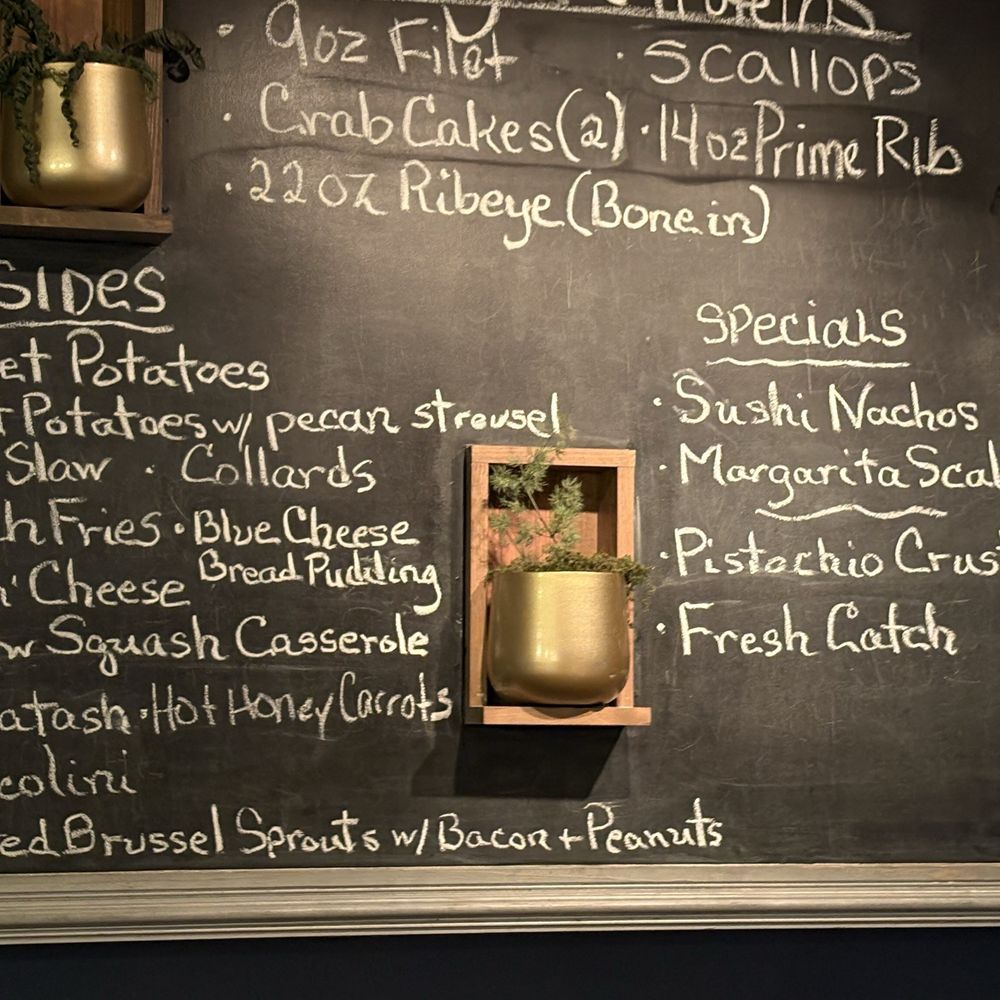 Proteins
· 9oz Filet · Scallops
· Crab Cakes (2) · 14oz Prime Rib
· 22oz Ribeye (Bone in)
SIDES
et Potatoes
t Potatoes w/ pecan streusel
Slaw · Collards
h Fries · Blue Cheese
Bread Pudding
n' Cheese
w Squash Casserole
atash · Hot Honey Carrots
colini
ed Brussel Sprouts w/ Bacon + Peanuts
Specials
· Sushi Nachos
· Margarita Scal
· Pistachio Crus
· Fresh Catch